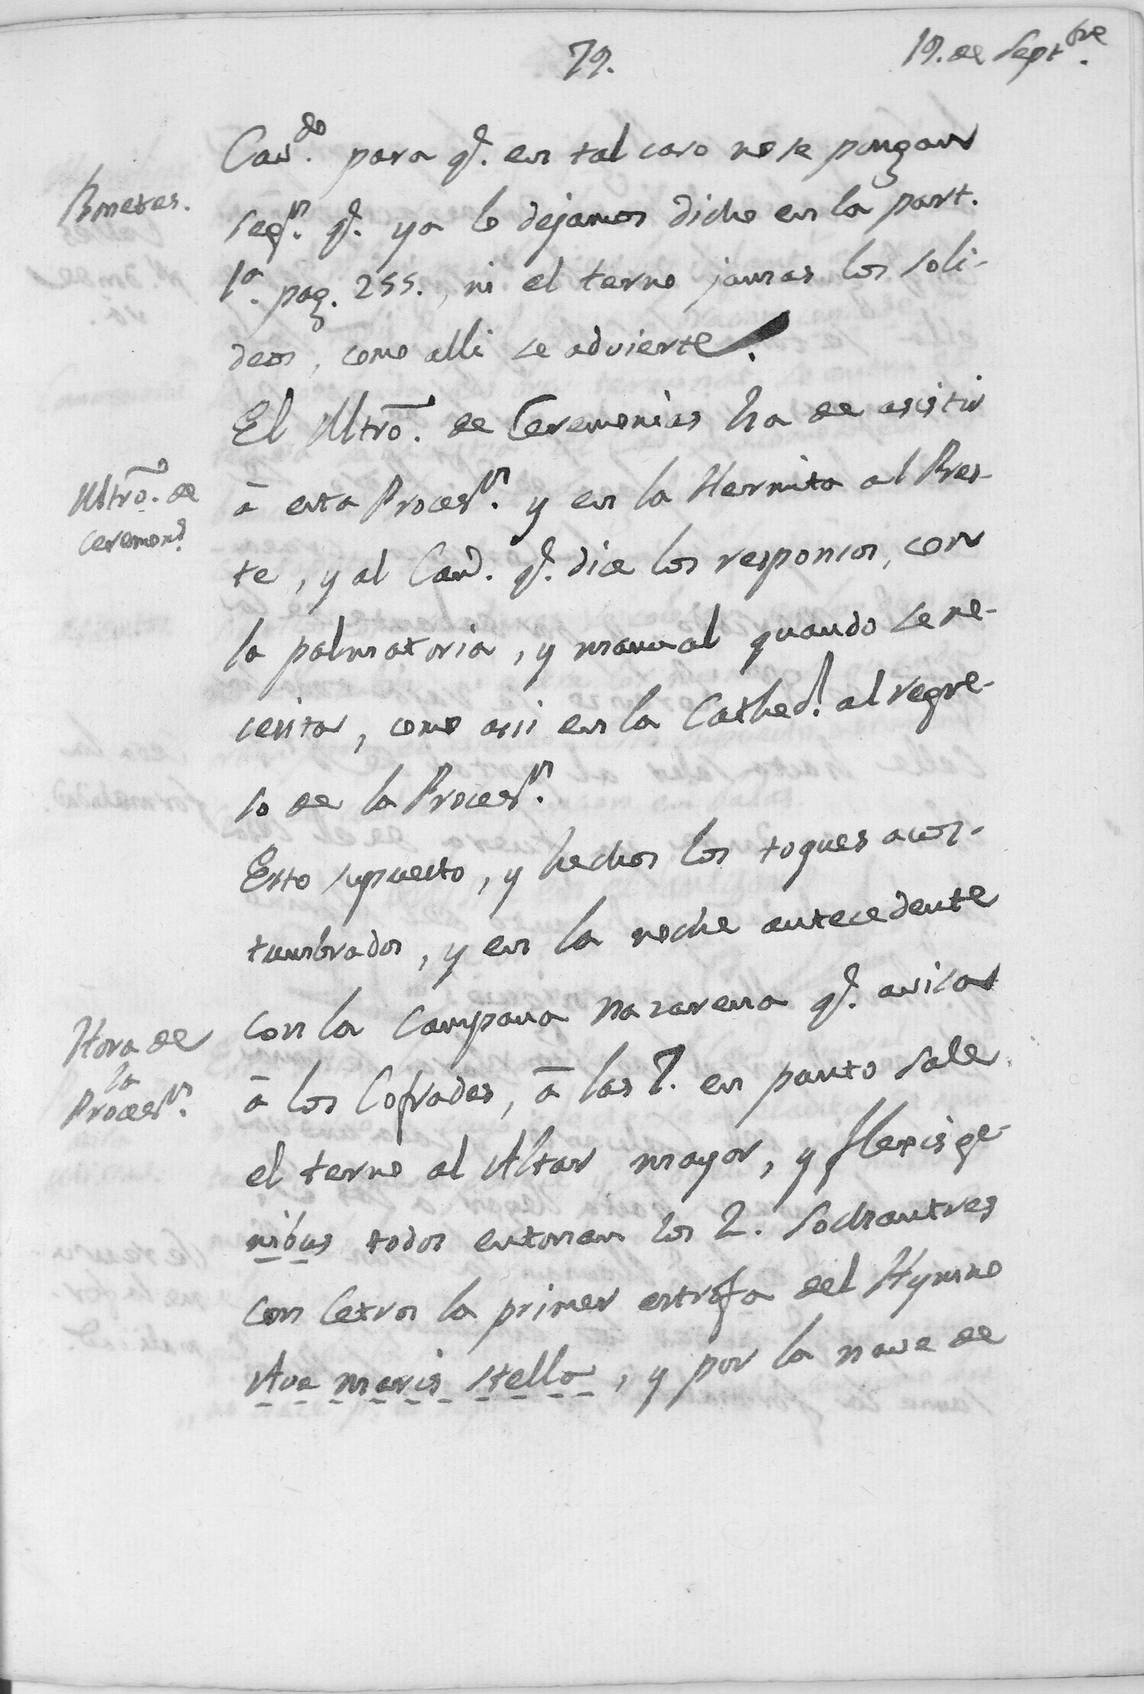 79.
19. de Septbre.
Cavdo. para q. en tal caso no se pongan
Bonetes.
segn. q. ya lo dejamos dicho en la part.
1a. pag. 255., ni el terno jamas los soli-
deos, como alli se advierte.
El Mtro. de Ceremonias ha de asistir
Mtro. de
ceremons.
â esta Procesn. y en la Hermita al Pres-
te, y al Can. q. dice los responsos, con
la palmatoria, y manual quando se ne-
cesita, como asi en la Cathedl. al regre-
so de la Procesn.
Esto supuesto, y hechos los toques acos-
tumbrados, y en la noche antecedente
con la Campana nazarena q. avisa
Hora de
la
Procesn.
â los Cofrades, â las 7. en punto sale
el terno al Altar mayor, y flexis ge-
nibus todos entonan los 2. Sochantres
con Cetros la primer estrofa del Hymno
Ave maris stella, y por la nave de